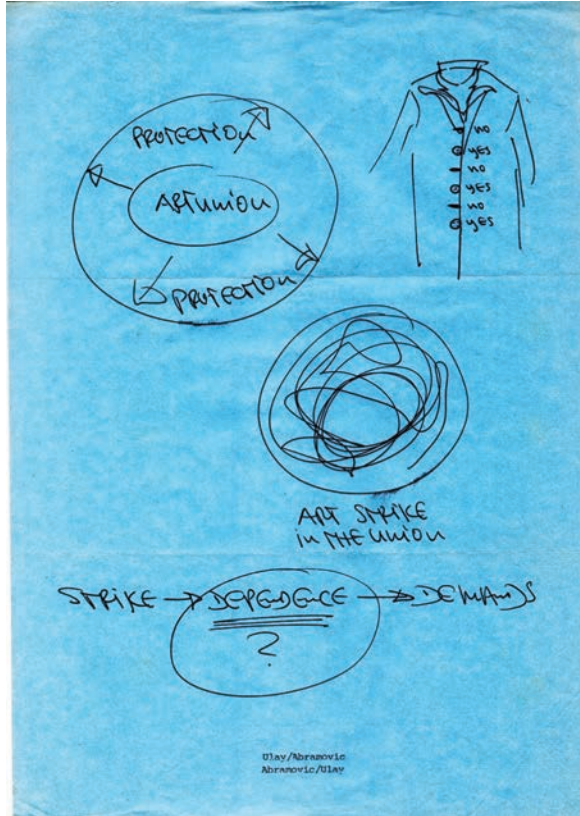 PROTECTION
ART UNION
PROTECTION
NO
YES
NO
YES
NO
YES
ART STRIKE
in THE UNION
STRIKE → DEPENDENCE → DEMANDS
?
Ulay/Abramovic
Abramovic/Ulay